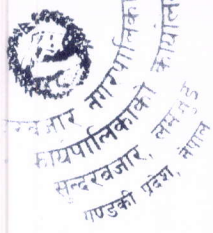 रबजार नगरपालिका
कार्यपालिकाको कार्याल
सुन्दरबजार, लमजुङ
गण्डकी प्रदेश, नेपाल